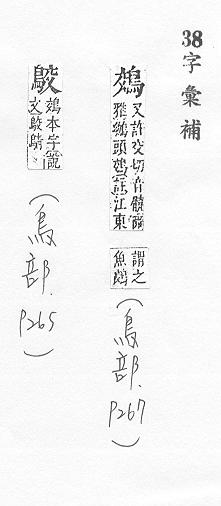 38 字彙補
鵁 又許交切音髐爾
雅頭鵁註江東
謂之
魚鵁
(鳥部. P267)
鵁本字說
文鶄
(鳥部. P265)